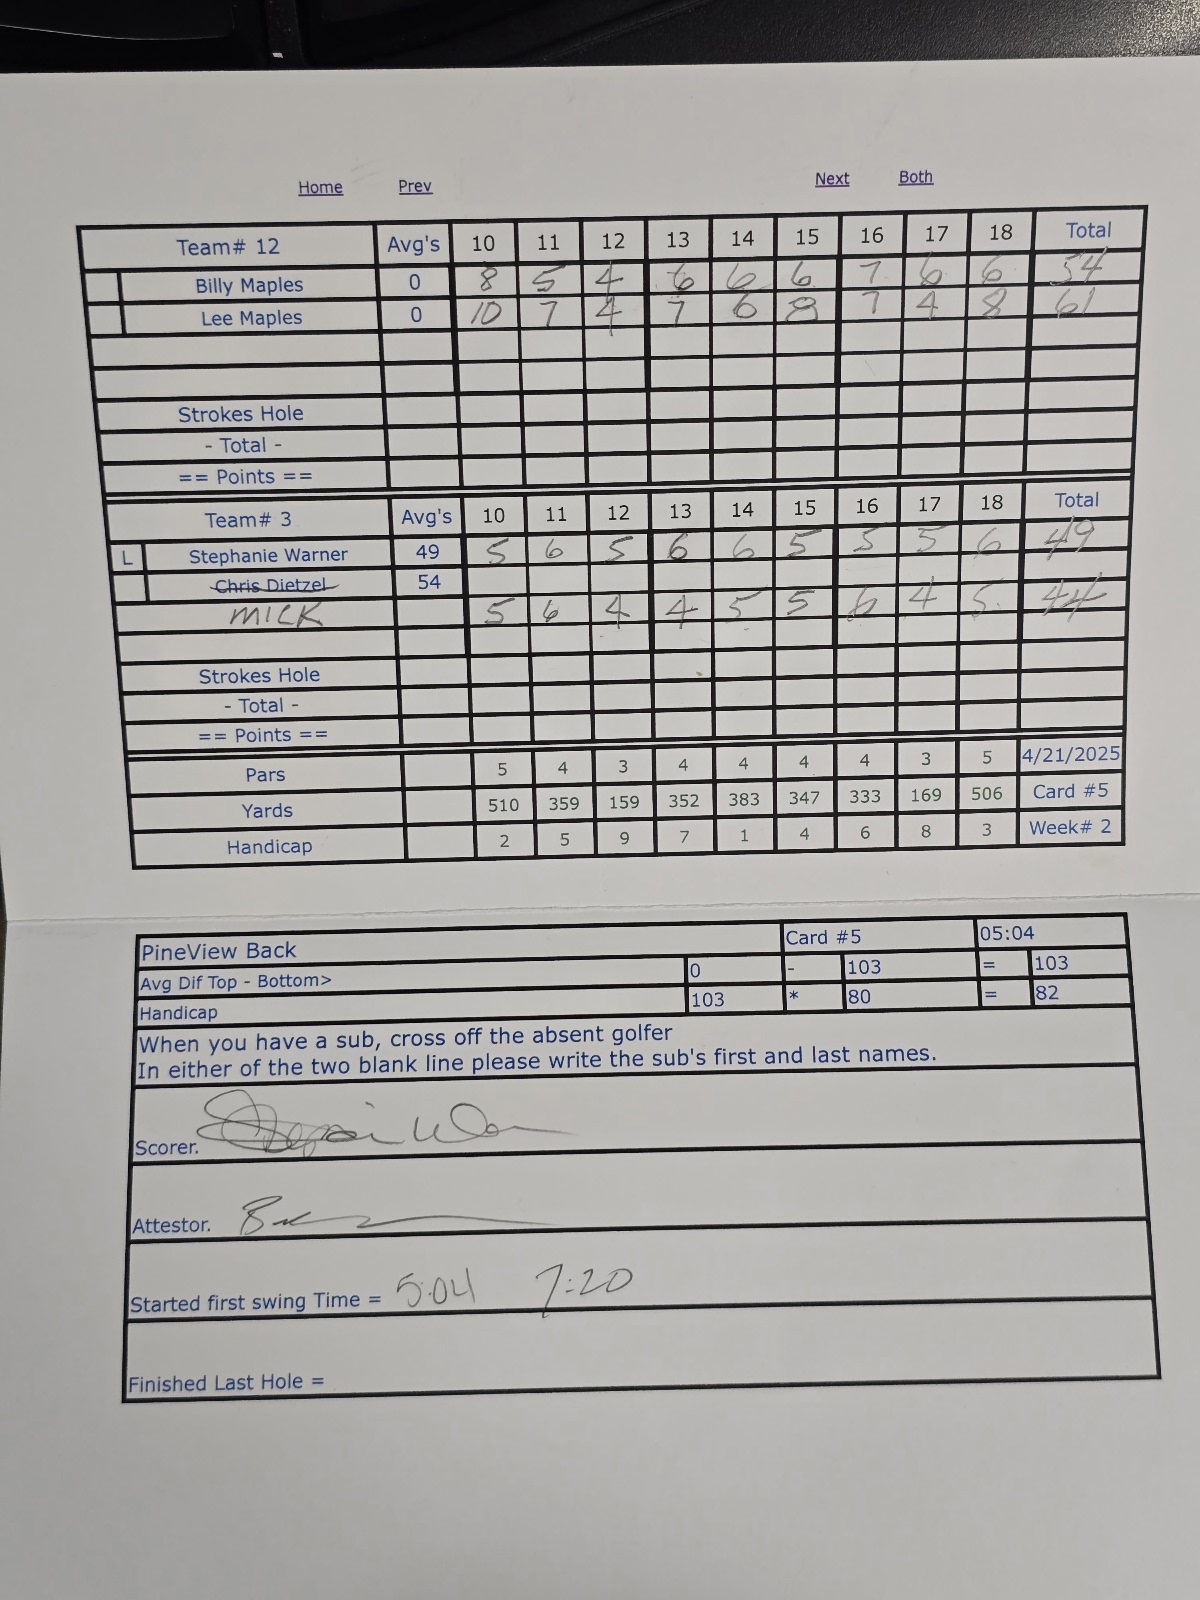 Home Prev Next Both
Team# 12 Avg's 10 11 12 13 14 15 16 17 18 Total
Billy Maples 0 8 5 4 6 6 6 7 6 6 54
Lee Maples 0 10 7 4 7 6 8 7 4 8 61
Strokes Hole
- Total -
== Points ==
Team# 3 Avg's 10 11 12 13 14 15 16 17 18 Total
L Stephanie Warner 49 5 6 5 6 6 5 5 5 6 49
Chris Dietzel 54
MICK 5 6 4 4 5 5 6 4 5 44
Strokes Hole
- Total -
== Points ==
Pars 5 4 3 4 4 4 4 3 5 4/21/2025
Yards 510 359 159 352 383 347 333 169 506 Card #5
Handicap 2 5 9 7 1 4 6 8 3 Week# 2
PineView Back Card #5 05:04
Avg Dif Top - Bottom> 0 - 103 = 103
Handicap 103 * 80 = 82
When you have a sub, cross off the absent golfer
In either of the two blank line please write the sub's first and last names.
Scorer.
Attestor.
Started first swing Time = 5:04 7:20
Finished Last Hole =